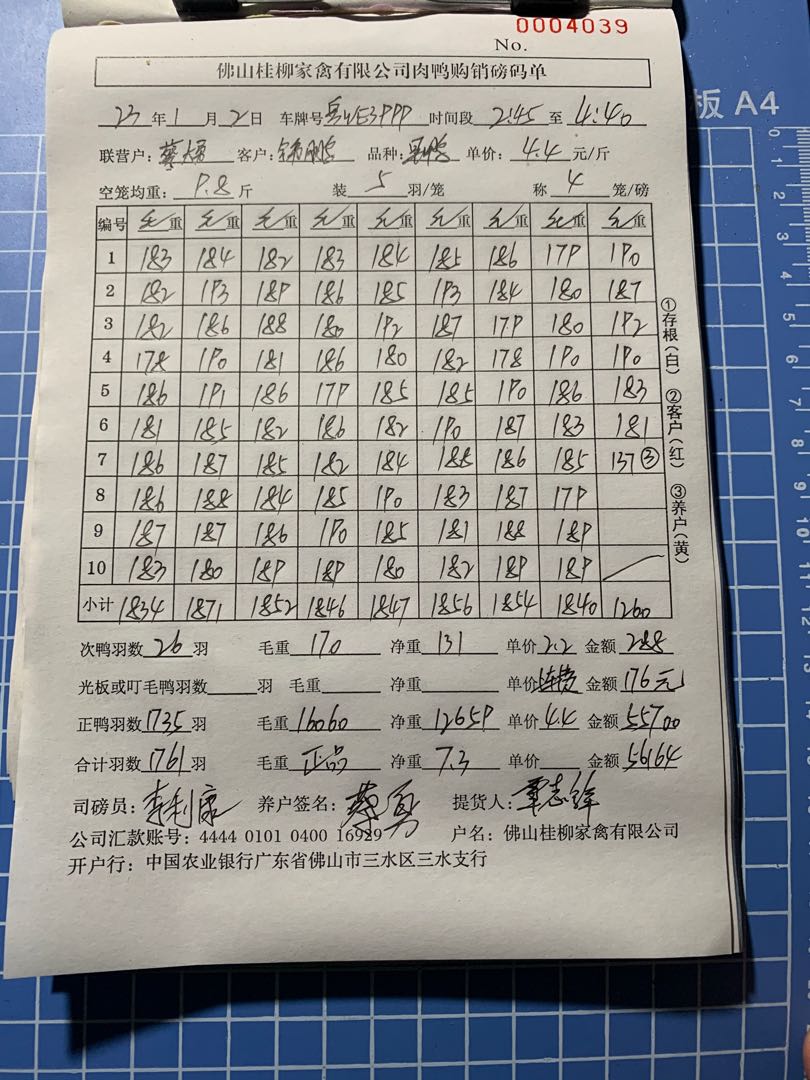 0004039
No.
佛山桂柳家禽有限公司肉鸭购销磅码单
23年1月2日 车牌号 时间段 2:45 至 4:40
联营户: 客户: 品种: 单价: 4.4 元/斤
空笼均重: 9.8 斤 装 5 羽/笼 称 4 笼/磅
编号 毛重 毛重 毛重 毛重 毛重 毛重 毛重 毛重 毛重
1 183 184 182 183 184 185 186 179 190
2 182 193 189 186 185 193 184 180 187
3 182 186 188 180 192 187 179 180 192
4 178 190 181 186 180 182 178 190 190
5 186 191 186 179 185 185 190 186 183
6 181 185 182 186 182 190 187 183 181
7 186 187 185 182 184 188 186 185 137③
8 186 188 184 185 190 183 187 179
9 187 187 186 190 185 181 188 189
10 183 180 189 189 180 182 189 189
小计 1834 1871 1852 1846 1847 1856 1854 1840 1260
①存根(白) ②客户(红) ③养户(黄)
次鸭羽数 26 羽 毛重 170 净重 131 单价 2.2 金额 288
光板或叮毛鸭羽数 羽 毛重 净重 单价 金额 176元
正鸭羽数 1735 羽 毛重 16060 净重 12659 单价 4.4 金额 55700
合计羽数 1761 羽 毛重 正品 净重 7.3 单价 金额 56164
司磅员: 李利康 养户签名: 蔡勇 提货人: 覃志锋
公司汇款账号: 4444 0101 0400 16929 户名: 佛山桂柳家禽有限公司
开户行: 中国农业银行广东省佛山市三水区三水支行
板 A4
0 1 2 3 4 5 6 7 8 9 10 11 12 13